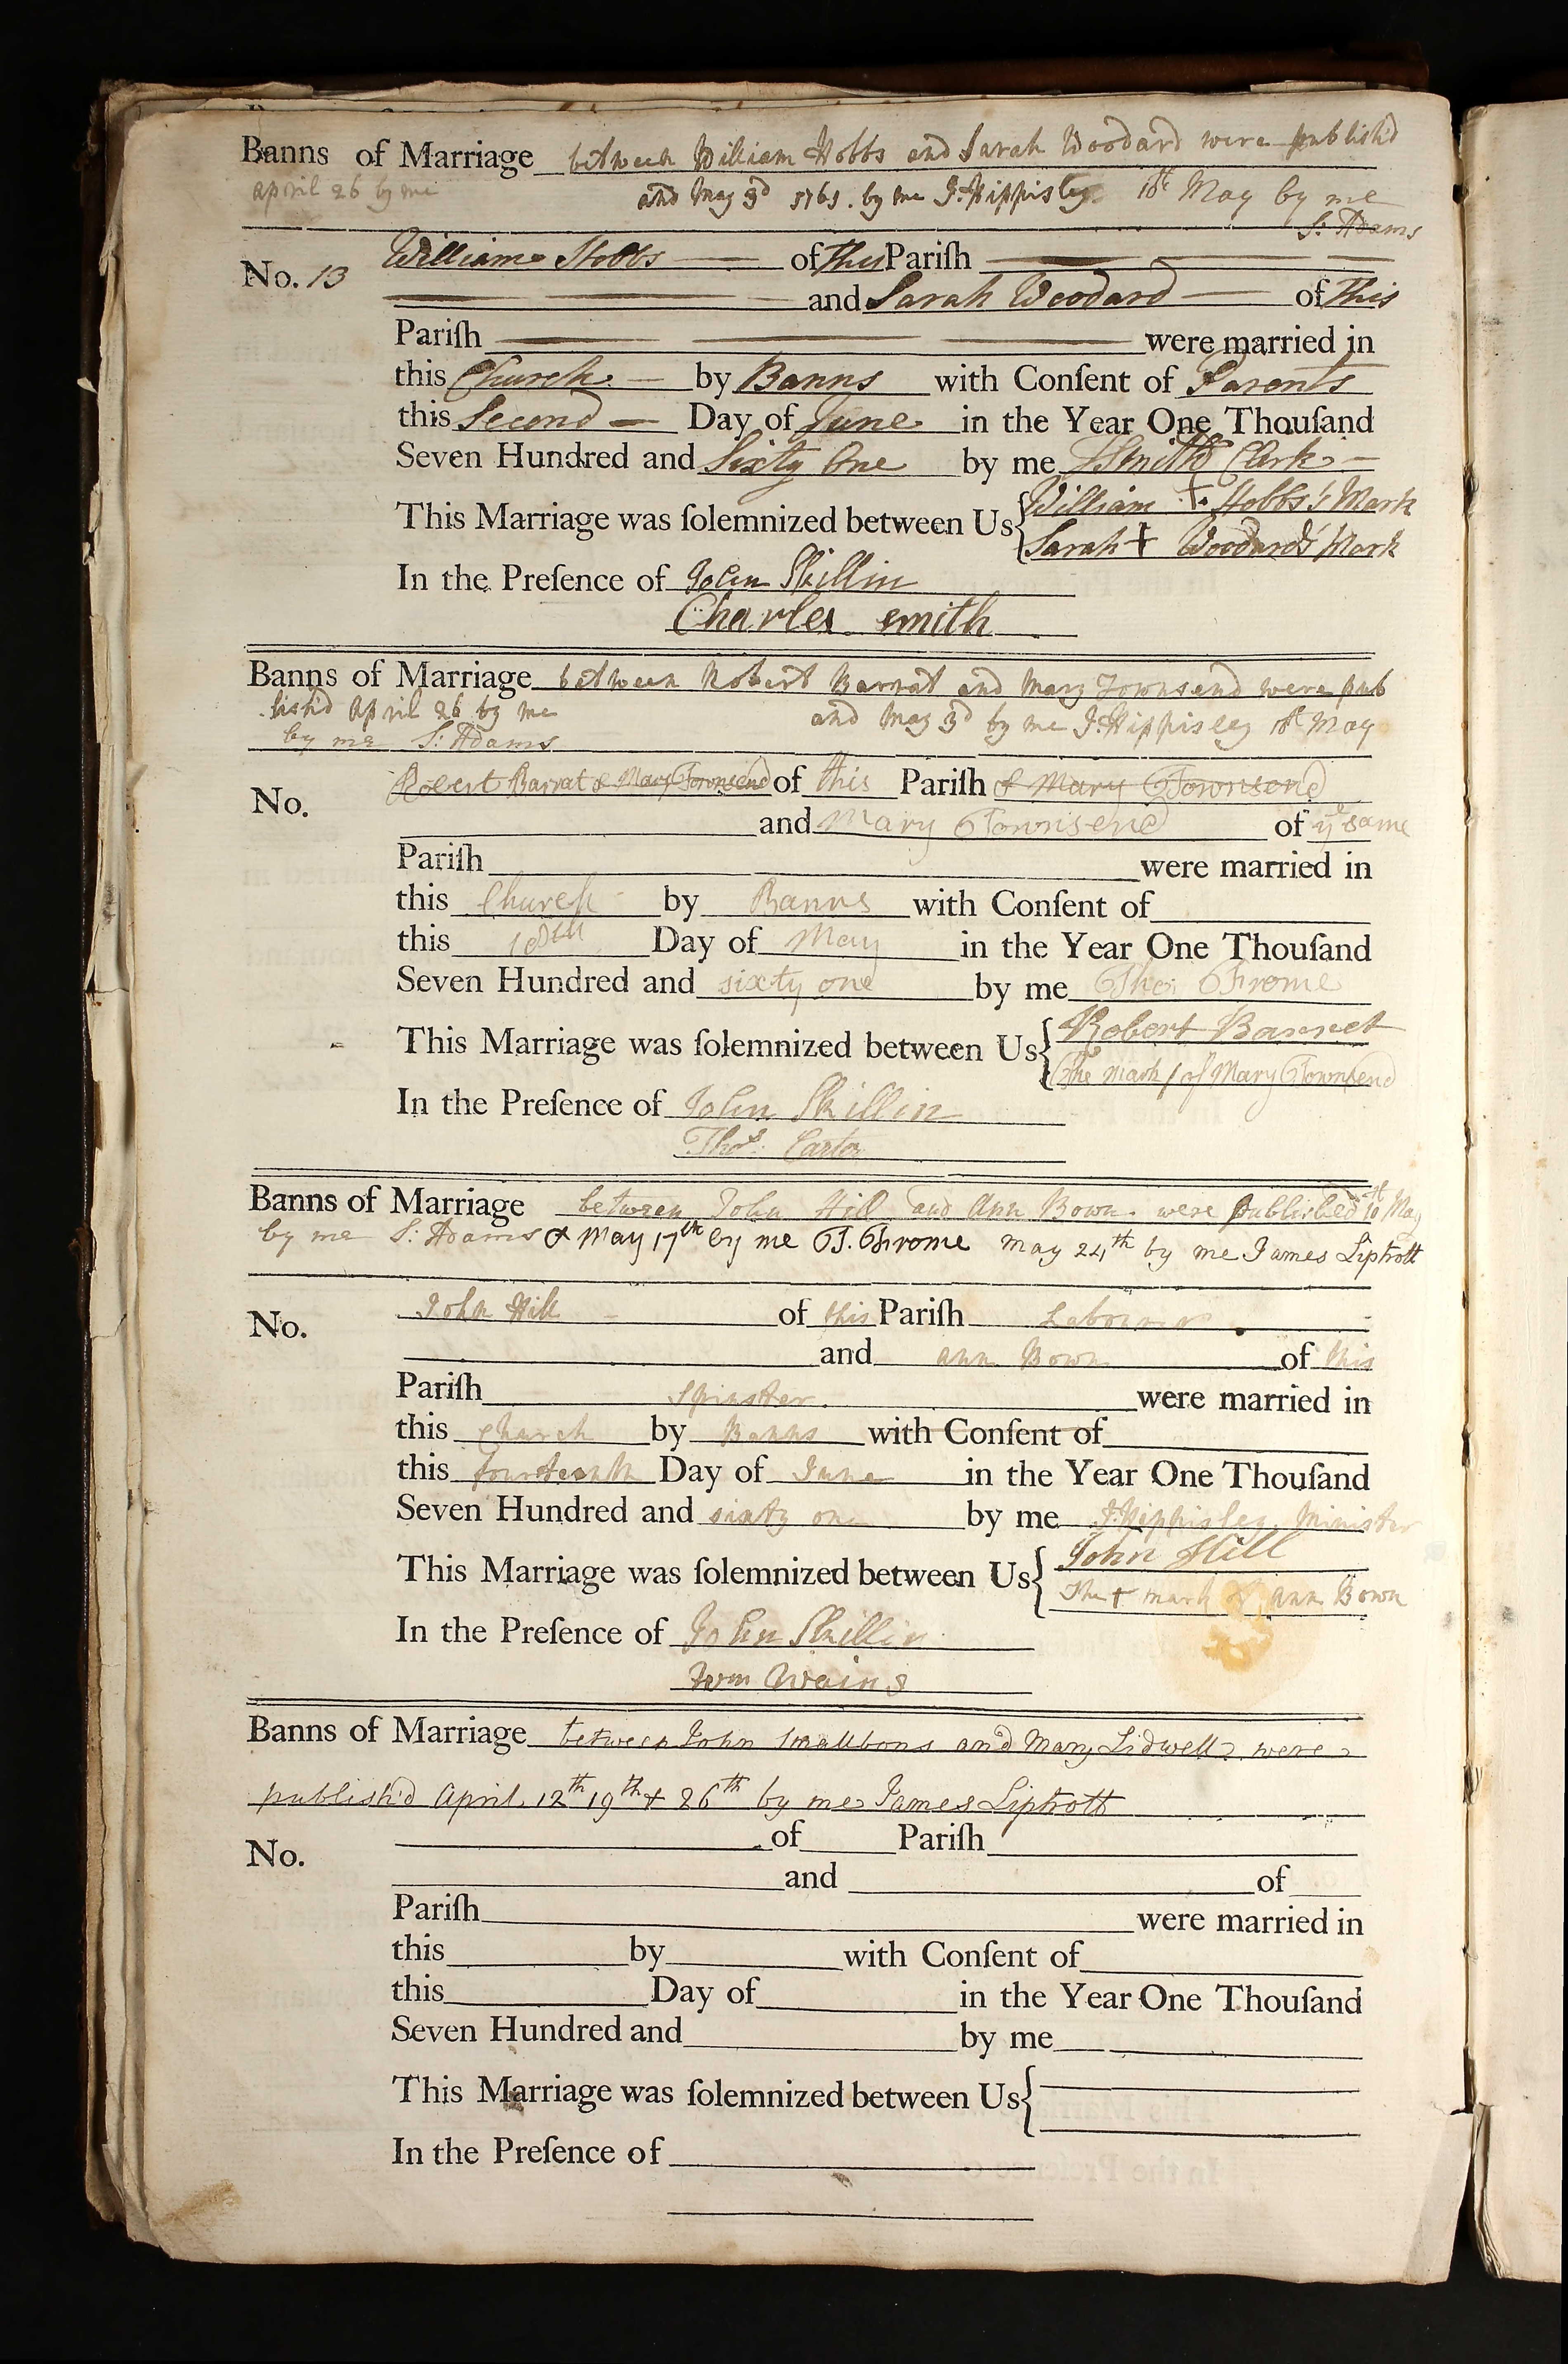 Banns of Marriage between William Hobbs and Sarah Woodard were publish'd
april 26 by me and May 3d 1761. by me J. Hippisley 10th May by me
S: Adams
No. 13 William Hobbs of this Pariſh
and Sarah Woodard of this
Pariſh were married in
this Church by Banns with Conſent of Parents
this Second Day of June in the Year One Thouſand
Seven Hundred and Sixty One by me Smith Clerk
This Marriage was ſolemnized between Us William + Hobbs's Mark
Sarah + Woodard's Mark
In the Preſence of John Skillin
Charles smith
Banns of Marriage between Robert Barrat and Mary Townsend were pub
lish'd April 26 by me and May 3d by me J. Hippisley 10th May
by me S: Adams
No. Robert Barrat & Mary Townsend of this Pariſh & Mary Townsend
and Mary Townsend of ye same
Pariſh were married in
this Church by Banns with Conſent of
this 10th Day of May in the Year One Thouſand
Seven Hundred and sixty one by me Tho: Frome
This Marriage was ſolemnized between Us Robert Barret
The mark / of Mary Townsend
In the Preſence of John Skillin
Thos. Carter
Banns of Marriage between John Hill and Ann Bown were published 10th May
by me S: Adams & May 17th by me T. Frome May 24th by me James Liptrott
No. John Hill of this Pariſh Labourer
and ann Bown of this
Pariſh Spinster were married in
this church by Banns with Conſent of
this fourteenth Day of June in the Year One Thouſand
Seven Hundred and sixty one by me J. Hippisley Minister
This Marriage was ſolemnized between Us John Hill
The + mark of ann Bown
In the Preſence of John Skillin
Wm Wains
Banns of Marriage between John Smallbons and Mary Lidwell were
publish'd April 12th 19th & 26th by me James Liptrott
No. of Pariſh
and of
Pariſh were married in
this by with Conſent of
this Day of in the Year One Thouſand
Seven Hundred and by me
This Marriage was ſolemnized between Us
In the Preſence of